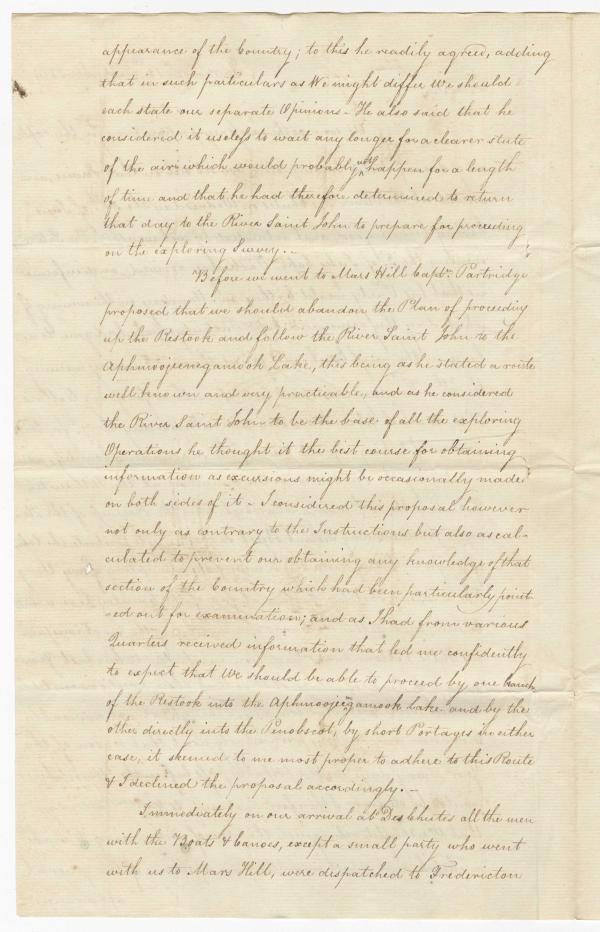 appearance of the Country; to this he readily agreed, adding
that in such particulars as We might differ We should
each state our separate Opinions - He also said that he
considered it useless to wait any longer for a clearer state
of the air which would probably not happen for a length
of time and that he had therefore determined to return
that day to the River Saint John to prepare for proceeding
on the exploring Survey. -
Before we went to Mars Hill Capt. Partridge
proposed that we should abandon the Plan of proceeding
up the Restook and follow the River Saint John to the
Aphmoojeenegamook Lake, this being as he stated a route
well known and very practicable, and as he considered
the River Saint John to be the base of all the exploring
Operations he thought it the best course for obtaining
information as excursions might be occasionally made
on both sides of it - I considered this proposal however
not only as contrary to the Instructions but also as cal-
culated to prevent our obtaining any knowledge of that
section of the Country which had been particularly point-
-ed out for examination; and as I had from various
Quarters received information that led me confidently
to expect that We should be able to proceed by one branch
of the Restook into the Aphmoojeegamook Lake and by the
other directly into the Penobscot, by short Portages in either
case, it seemed to me most proper to adhere to this Route
& I declined the proposal accordingly. -
Immediately on our arrival at Des Chutes all the men
with the Boats & Canoes, except a small party who went
with us to Mars Hill, were dispatched to Fredericton